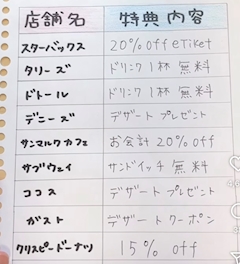 店舗名 特典内容
スターバックス 20% off eTiket
タリーズ ドリンク1杯無料
ドトール ドリンク1杯無料
デニーズ デザートプレゼント
サンマルクカフェ お会計20%off
サブウェイ サンドイッチ無料
ココス デザートプレゼント
ガスト デザートクーポン
クリスピードーナツ 15% off